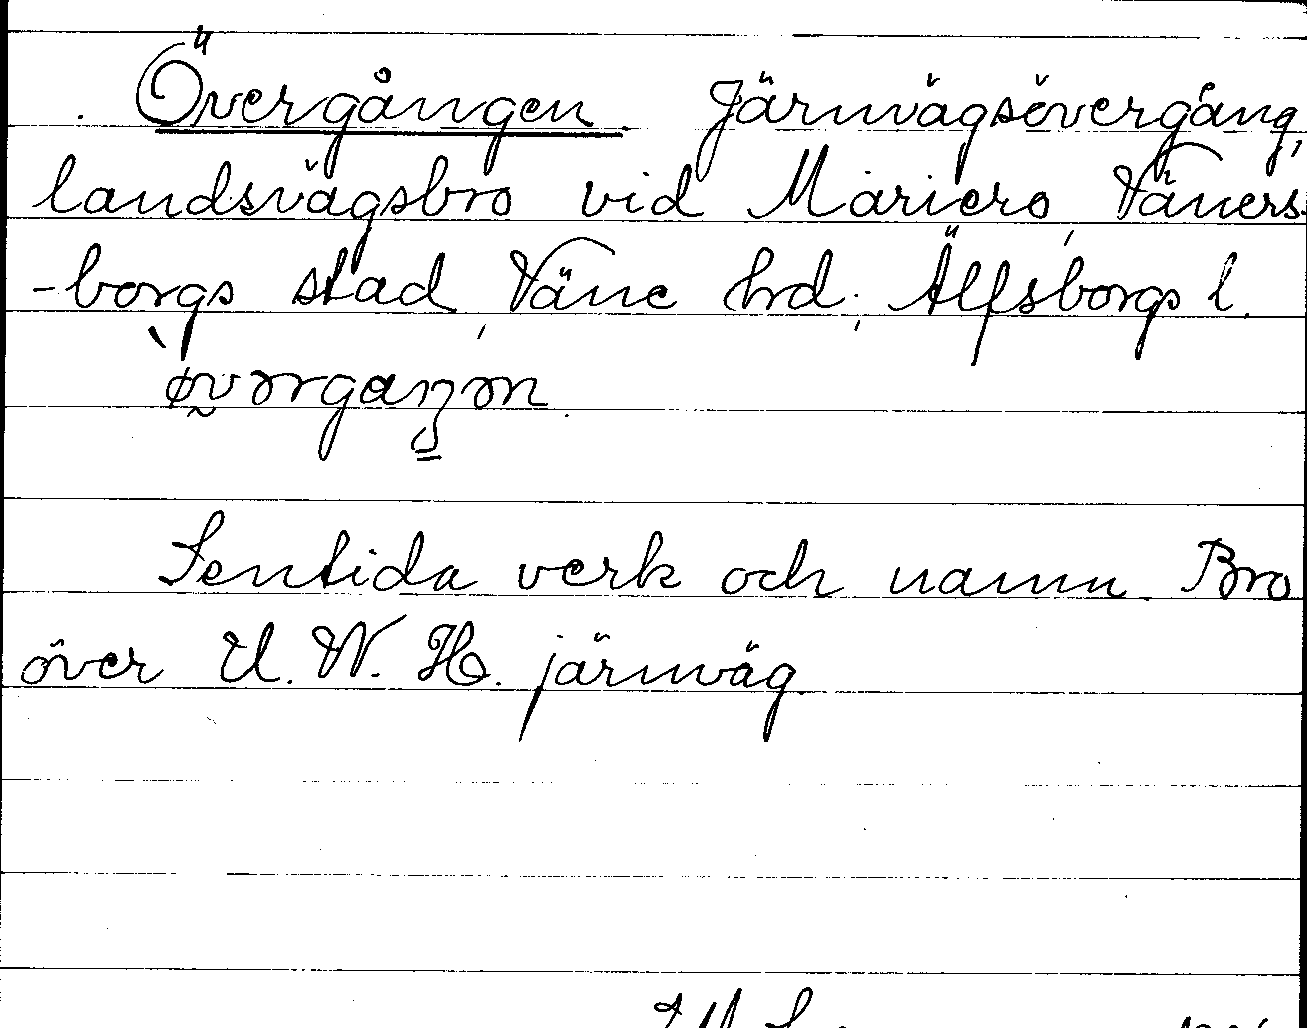 Övergången. Järnvägsövergång,
landsvägsbro vid Mariero, Väners-
-borgs stad, Väne hrd; Älfsborgs l.
Sentida verk och namn. Bro
över U. W. H. järnväg.